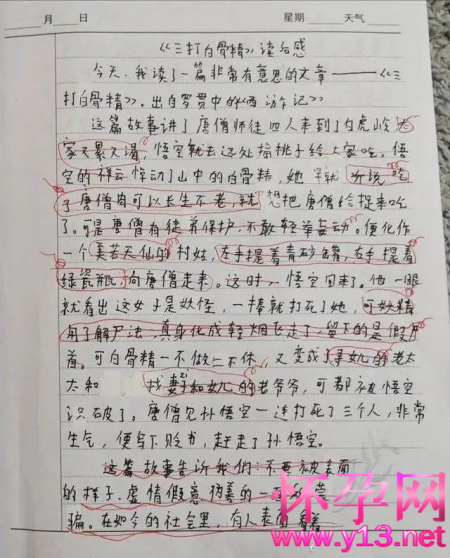 月 日 星期 天气
《三打白骨精》读后感
今天,我读了一篇非常有意思的文章——《三
打白骨精》。出自罗贯中的《西游记》
这篇故事讲了唐僧师徒四人来到了白虎岭,大
家又累又渴,悟空就去远处摘桃子给大家吃。悟
空的祥云惊动了山中的白骨精,她早就听说吃
了唐僧肉可以长生不老,就想把唐僧给捉来吃
了。可是唐僧有徒弟保护,不敢轻举妄动。便化作
一个美若天仙的村姑,左手提着青砂罐,右手提着
绿瓷瓶,向唐僧走来。这时,悟空回来了。他一眼
就看出这女子是妖怪,一棒就打死了她,可妖精
用了解尸法,真身化成轻烟飞走了。留下的是假尸
首。可白骨精一不做二不休,又变成了寻女儿的老太
太和 找妻子和女儿的老爷爷,可都被悟空
识破了。唐僧见孙悟空一连打死了三个人,非常
生气,便写下贬书,赶走了孙悟空。
这篇故事告诉我们:不要被表面
的样子、虚情假意伪善的一
骗。在如今的社会里,有人表面看着
怀孕网
www.y13.net